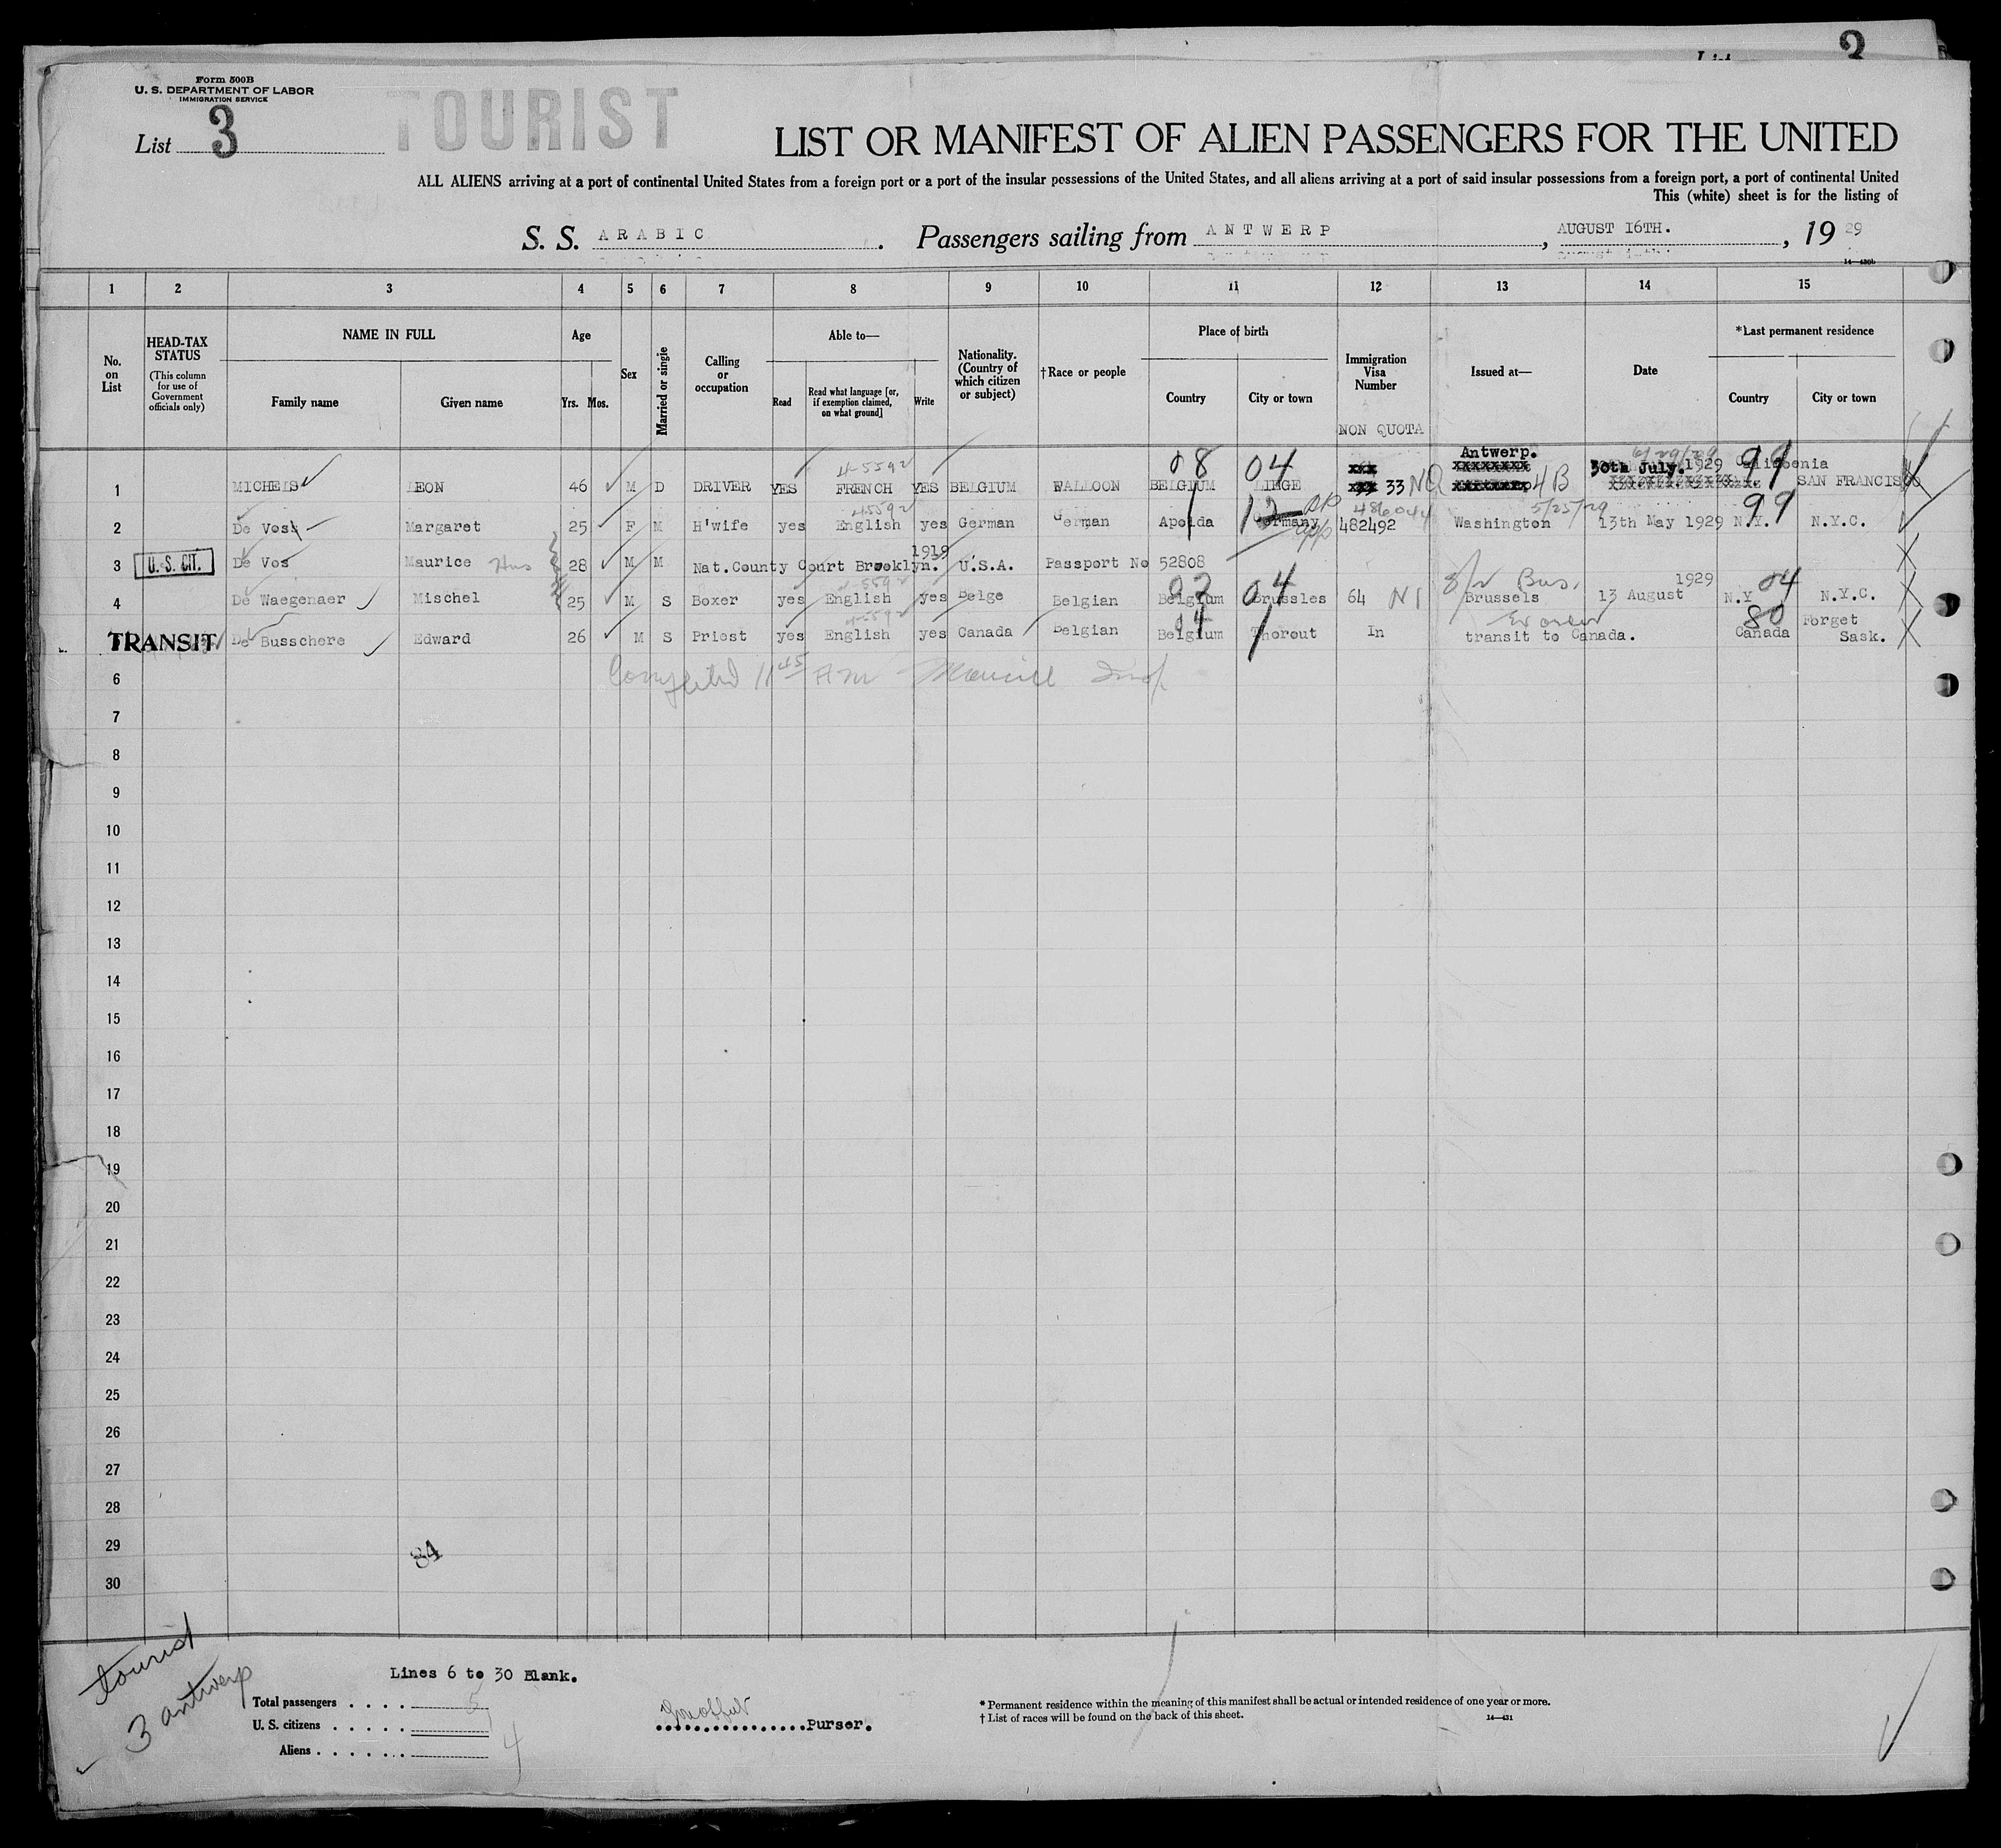 List 3
Form 500B
U. S. DEPARTMENT OF LABOR
IMMIGRATION SERVICE
List 3
TOURIST
LIST OR MANIFEST OF ALIEN PASSENGERS FOR THE UNITED
ALL ALIENS arriving at a port of continental United States from a foreign port or a port of the insular possessions of the United States, and all aliens arriving at a port of said insular possessions from a foreign port, a port of continental United
This (white) sheet is for the listing of
S. S. ARABIC. Passengers sailing from ANTWERP, AUGUST 16TH., 19 29
14—430b
1 2 3 4 5 6 7 8 9 10 11 12 13 14 15
No. on List
HEAD-TAX STATUS (This column for use of Government officials only)
NAME IN FULL Family name Given name
Age Yrs. Mos.
Sex
Married or single
Calling or occupation
Able to— Read Read what language [or, if exemption claimed, on what ground] Write
Nationality. (Country of which citizen or subject)
†Race or people
Place of birth Country City or town
Immigration Visa Number
NON QUOTA
Issued at—
Date
*Last permanent residence Country City or town
4-5592 08 04 Antwerp. 6/29/29 99
1 MICHELS LEON 46 M D DRIVER YES FRENCH YES BELGIUM WALLOON BELGIUM LIEGE xxx 33 NQ xxxxxxxx 4B 30th July. 1929 California SAN FRANCISCO
4559 1 12 486044 5/25/29 99
2 De Vos Margaret 25 F M H'wife yes English yes German German Apolda Germany 482492 Washington 13th May 1929 N.Y. N.Y.C.
1919
3 U. S. CIT. De Vos Maurice Hus 28 M M Nat. County Court Brooklyn. U.S.A. Passport No 52808
4-559 04 Bus. 1929 04
4 De Waegenaer Mischel 25 M S Boxer yes English yes Belge Belgian Belgium Brussles 64 Brussels 13 August N.Y N.Y.C.
4-559 1 80 Forget
TRANSIT De Busschere Edward 26 M S Priest yes English yes Canada Belgian Belgium Thorout In transit to Canada. Canada Sask.
6 Completed 11 45 AM
7
8
9
10
11
12
13
14
15
16
17
18
19
20
21
22
23
24
25
26
27
28
29
84
30
tourist
3 antwerp
Lines 6 to 30 Blank.
Total passengers . . . . 5
U. S. citizens . . . . . 1
Aliens . . . . . . 4
................Purser.
* Permanent residence within the meaning of this manifest shall be actual or intended residence of one year or more.
† List of races will be found on the back of this sheet.
14—431